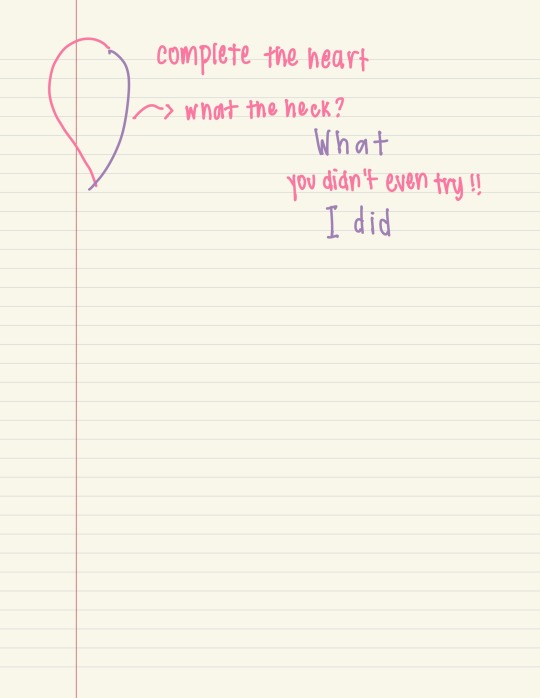 complete the heart
what the heck?
What
you didn't even try!!
I did